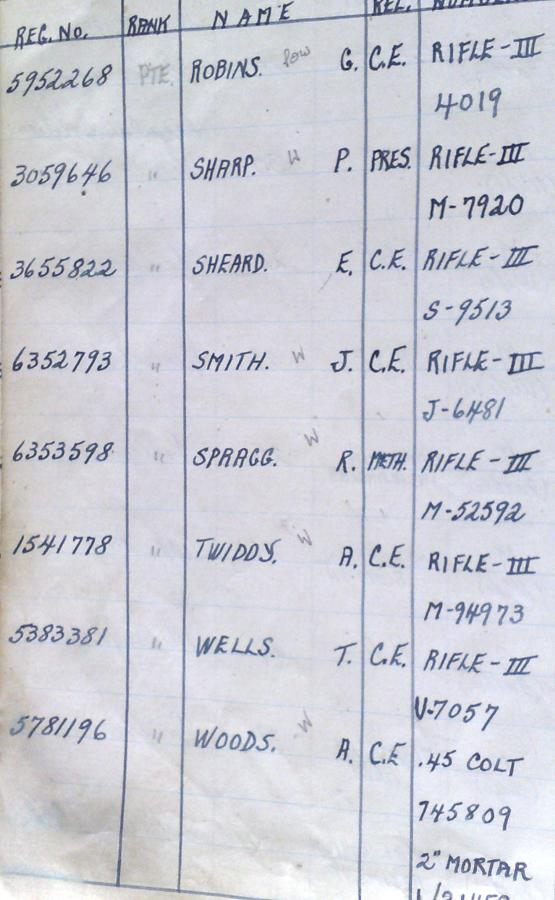 REG. No. RANK NAME REL.
5952268 PTE. ROBINS. G. C.E. RIFLE-III
4019
3059646 " SHARP. W P. PRES. RIFLE-III
M-7920
3655822 " SHEARD. E. C.E. RIFLE-III
S-9513
6352793 " SMITH. W J. C.E. RIFLE-III
J-6481
6353598 " SPRAGG. W R. METH. RIFLE-III
M-52592
1541778 " W A. C.E. RIFLE-III
M-94973
5383381 " WELLS. T. C.E. RIFLE-III
V-7057
5781196 " WOODS. W A. C.E .45 COLT
745809
2" MORTAR